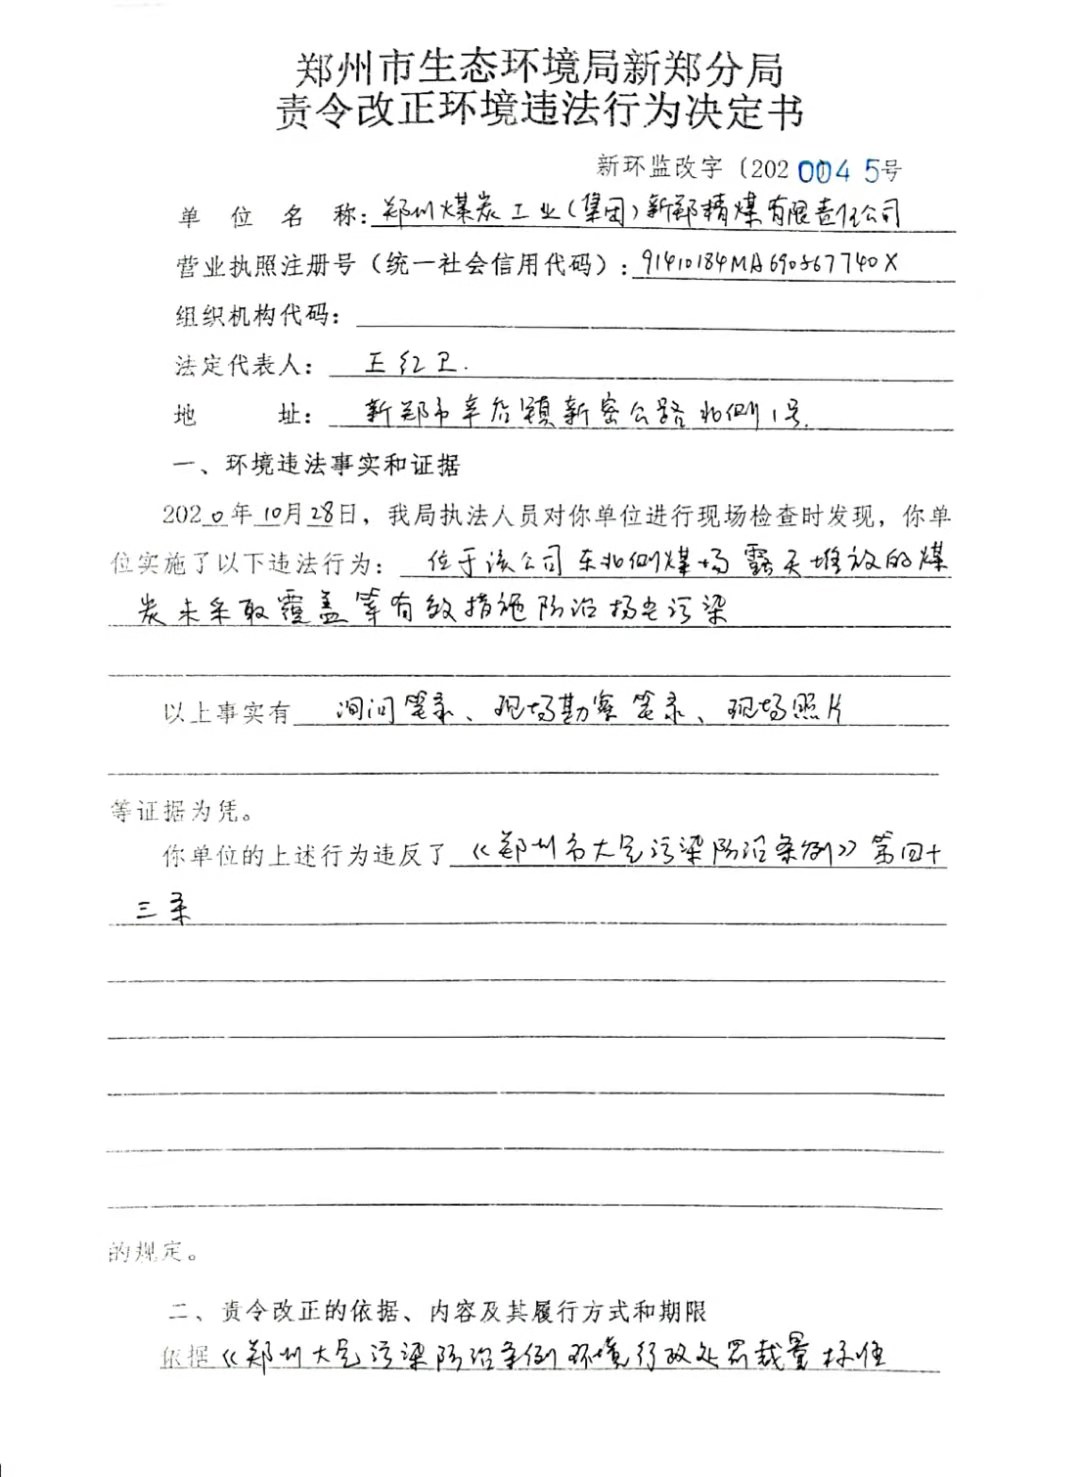 郑州市生态环境局新郑分局
责令改正环境违法行为决定书
新环监改字〔202 0045号
单位名称：郑州煤炭工业（集团）新郑精煤有限责任公司
营业执照注册号（统一社会信用代码）：
组织机构代码：
法定代表人：王红卫.
地址：新郑市辛店镇新密公路北侧1号.
一、环境违法事实和证据
2020年10月28日，我局执法人员对你单位进行现场检查时发现，你单
位实施了以下违法行为：位于该公司东北侧煤场露天堆放的煤
炭未采取覆盖等有效措施防治扬尘污染
以上事实有 询问笔录、现场勘察笔录、现场照片
等证据为凭。
你单位的上述行为违反了《郑州市大气污染防治条例》第四十
三条
的规定。
二、责令改正的依据、内容及其履行方式和期限
依据《郑州大气污染防治条例环境行政处罚裁量标准